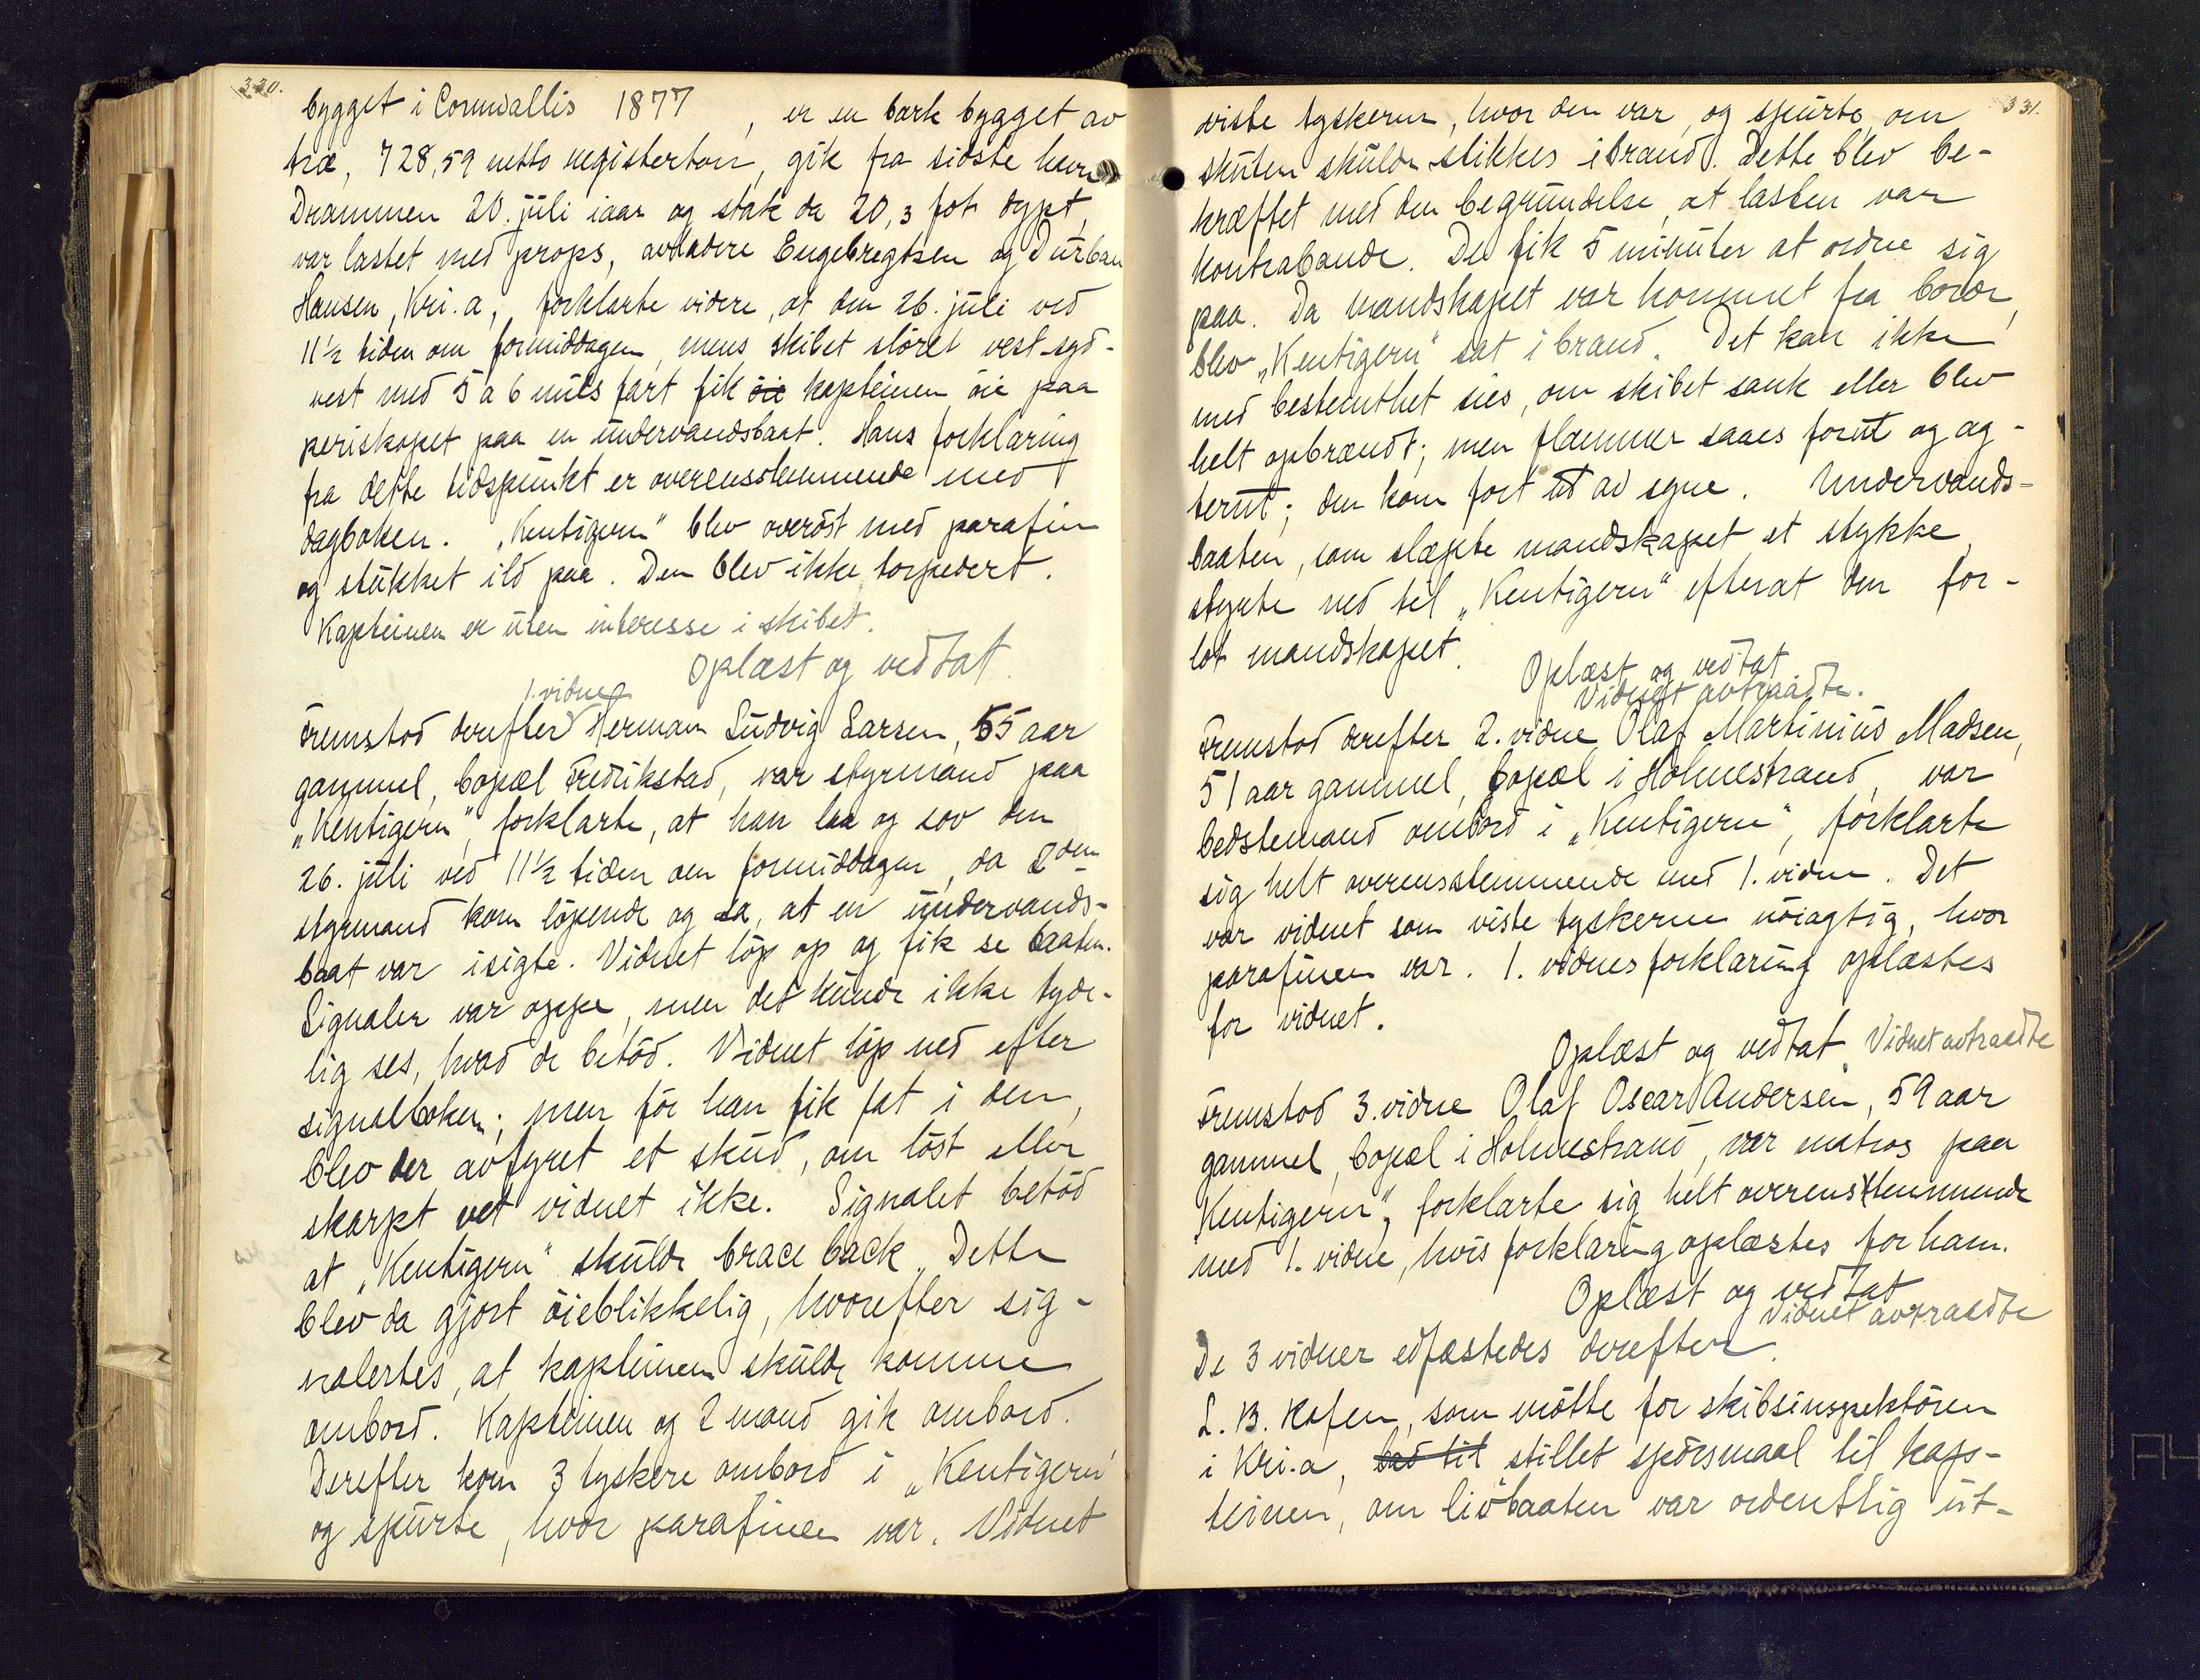 330.
bygget i Cornwallis 1877, er en bark bygget av
træ, 728,59 netto registerton, gik fra sidste havn
Drammen 20. juli iaar og stak da 20,3 fot dypt,
var lastet med props, avladere Engebregtsen og Durban
Hansen, Kri.a, forklarte videre, at den 26. juli ved
11½ tiden om formiddagen, mens skibet støret vest-syd-
vest med 5 a 6 mils fart fik øie kapteinen øie paa
periskopet paa en undervandsbaat. Hans forklaring
fra dette tidspunkt er overensstemmende med
dagboken. „Kentigern" blev overøst med parafin
og stukket ild paa. Den blev ikke torpedert.
Kapteinen er uten interesse i skibet.
Oplæst og vedtat.
1. vidne
Fremstod derefter Herman Ludvig Larsen, 55 aar
gammel, bopæl Fredrikstad, var styrmand paa
„Kentigern", forklarte, at han laa og sov den
26. juli ved 11½ tiden om formiddagen, da 2den
styrmand kom løpende og sa, at en undervands-
baat var isigte. Vidnet løp op og fik se baaten.
Signaler var oppe, men det kunde ikke tyde-
lig ses, hvad de betød. Vidnet løp ned efter
signalboken; men før han fik fat i den,
blev der avfyret et skud, om løst eller
skarpt vet vidnet ikke. Signalet betød
at „Kentigern" skulde brace back. Dette
blev da gjort øieblikkelig, hvorefter sig-
nalertes, at kapteinen skulde komme
ombord. Kapteinen og 2 mand gik ombord.
Derefter kom 3 tyskere ombord i „Kentigern"
og spurte, hvor parafinen var. Vidnet
331.
viste tyskerne, hvor den var, og spurte, om
skuten skulde stikkes i brand. Dette blev be-
kræftet med den begrundelse, at lasten var
kontrabande. De fik 5 minuter at ordne sig
paa. Da mandskapet var kommet fra borde,
blev „Kentigern" sat i brand. Det kan ikke
med bestemthet sies, om skibet sank eller blev
helt opbrændt; men flammer saaes forut og ag-
terut; den kom fort ut av syne. Undervands-
baaten, som slæpte mandskapet et stykke,
styrte ned til „Kentigern" efterat den for-
lot mandskapet.
Oplæst og vedtat.
Vidnet avtraadte.
Fremstod derefter 2. vidne Olaf Martinius Madsen,
51 aar gammel, bopæl i Holmestrand, var
bedstemand ombord i „Kentigern", forklarte
sig helt overensstemmende med 1. vidne. Det
var vidnet som viste tyskerne nøiagtig, hvor
parafinen var. 1. vidnes forklaring oplæstes
for vidnet.
Oplæst og vedtat. Vidnet avtraadte
Fremstod 3. vidne Olaf Oscar Andersen, 59 aar
gammel, bopæl i Holmestrand, var matros paa
Kentigern", forklarte sig helt overensstemmende
med 1. vidne, hvis forklaring oplæstes for ham.
Oplæst og vedtat
Vidnet avtraadte
De 3 vidner edfæstedes derefter.
L. B. Kofen, som møtte for skibsinspektøren
i Kri.a, bad til stillet spørsmaal til kap-
teinen, om livbaaten var ordentlig ut-